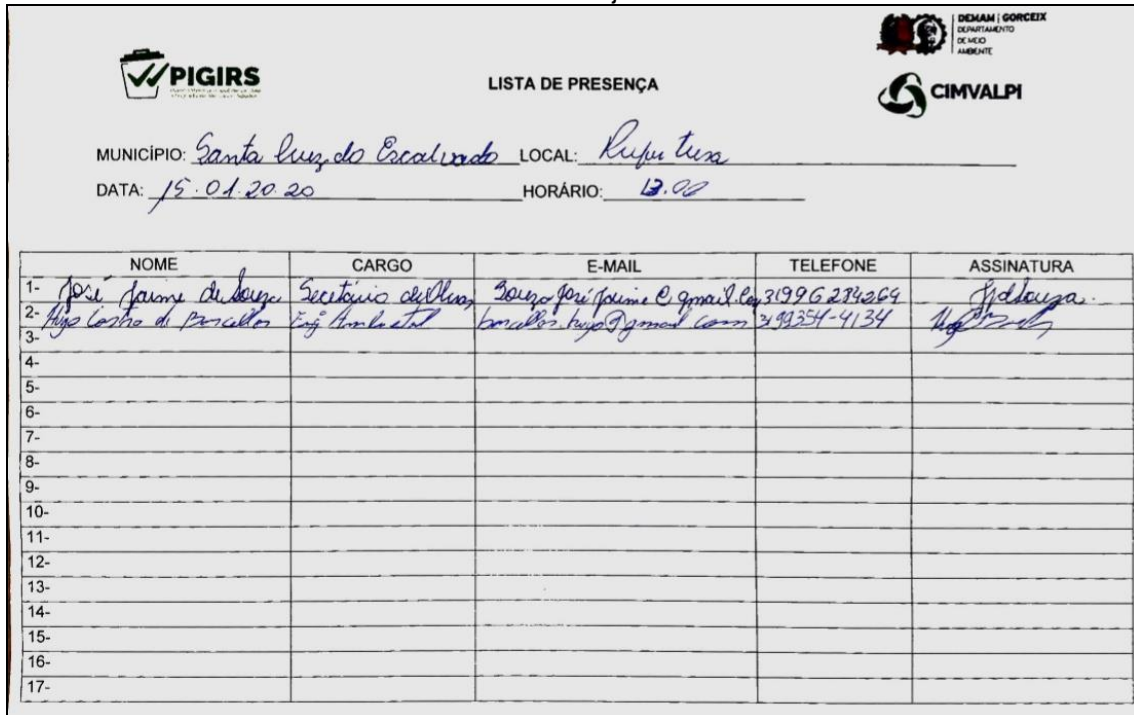 DEMAM | GORCEIX
DEPARTAMENTO
DE MEIO
AMBIENTE
PIGIRS
LISTA DE PRESENÇA
CIMVALPI
MUNICÍPIO: Santa Cruz do Escalvado LOCAL:
DATA: 15.01.20.20 HORÁRIO: 13.00
NOME CARGO E-MAIL TELEFONE ASSINATURA
1- José Jaime de Souza Secetário de Obras Souza José Jaime @ gmail.com 31996284264 JJdSouza.
2- Hugo Castro de Barcellos Engº Ambiental barcellos.hugo@gmail.com 3199354-4134
3-
4-
5-
6-
7-
8-
9-
10-
11-
12-
13-
14-
15-
16-
17-